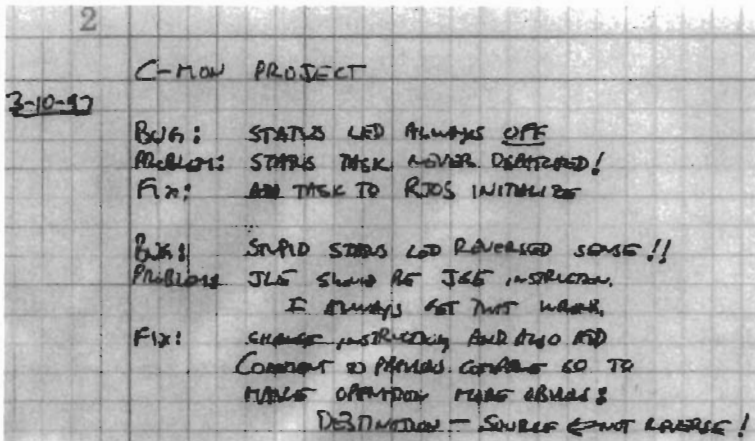 2
C-MON PROJECT
3-10-97
BUG: STATUS LED ALWAYS OFF
PROBLEM: STATUS TASK NEVER DISPATCHED!
FIX: ADD TASK TO RTOS INITIALIZE
BUG: STUPID STATUS LED REVERSED SENSE!!
PROBLEM: JLE SHOULD BE JGE INSTRUCTION.
I ALWAYS GET THAT WRONG.
FIX: CHANGE INSTRUCTION AND ALSO ADD
COMMENT TO PREVIOUS COMPARE SO TO
MAKE OPERATION MORE OBVIOUS:
DESTINATION - SOURCE ← NOT REVERSE!